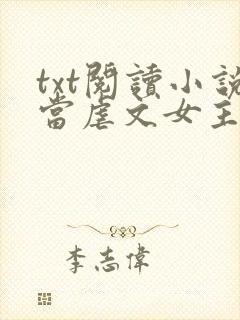 txt閱讀小說
當虐文女主
李志偉